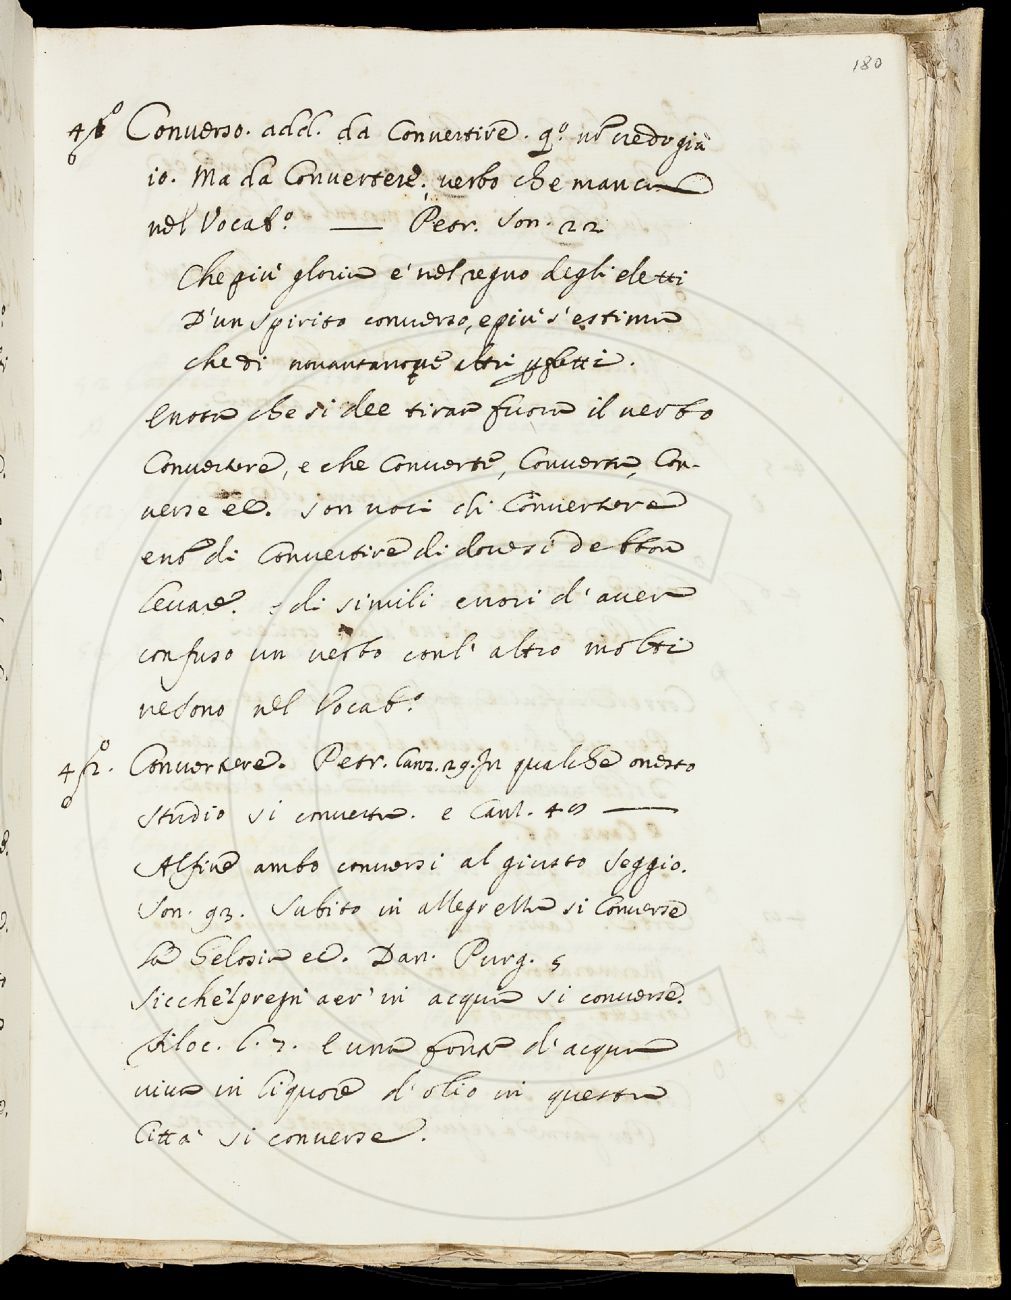 180
Conuerso. add. da Conuertire. q.o nō credo già
io. Ma da Conuertere, uerbo che manca
nel Vocab.o — Petr. Son. 22
Che più gloria e' nel regno degli eletti
D'un spirito conuerso, e più s'estima
che di nouantanoue altri pfetti.
E nota che si dee tirar fuora il uerbo
Conuertere, e che Conuerte, Conuerta, Con-
uerse ec. son uoci di Conuertere
e nō di Conuertire di doue si debbon
leuare. e di simili errori d'auer
confuso un uerbo con l'altro molti
ue sono nel Vocab.o
Conuertere. Petr. Canz. 29. In qualche onesto
studio si conuerta. e Canz. 49 —
Alfine ambo conuersi al giusto seggio.
Son. 93. Subito in allegrezza si conuerse
la Gelosia ec. Dan. Purg. 5
Sicche'l pregn' aer' in acqua si conuerse.
Filoc. l. 7. E una fonte d'acqua
uiua in liquore d'olio in questa
Città si conuerse.